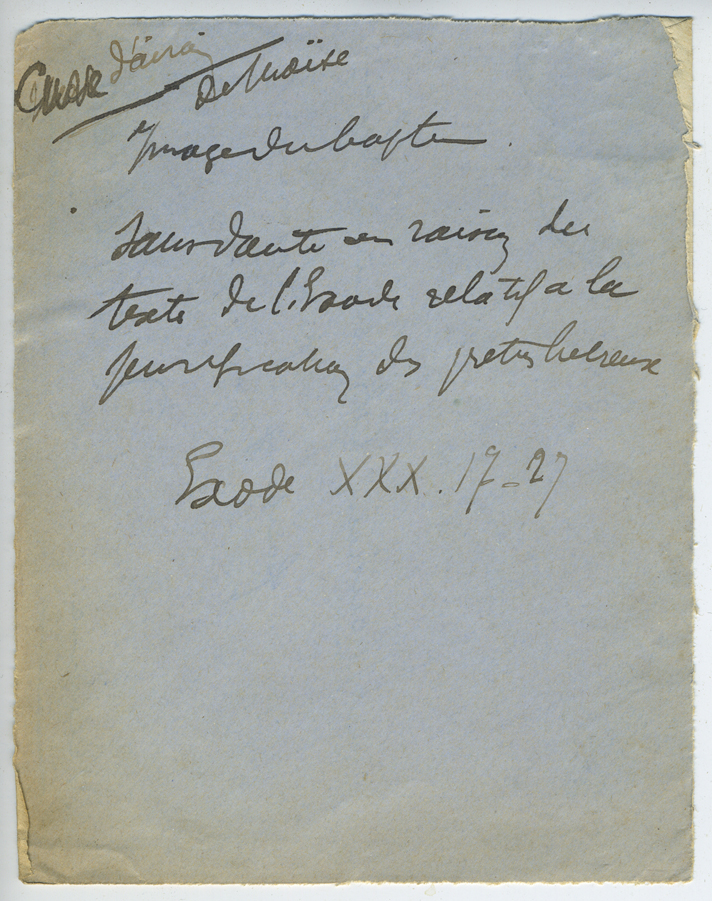 Cuve d'airain
de Moïse
Image du baptême.
Sans doute en raison du
texte de l'Exode relatif a la
purification des pretres hebreux
Exode XXX. 17-27